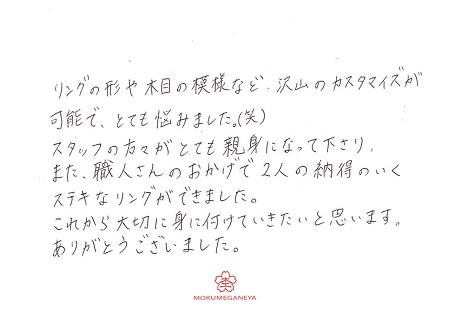 リングの形や木目の模様など、沢山のカスタマイズが
可能で、とても悩みました。(笑)
スタッフの方々がとても親身になって下さり、
また、職人さんのおかげで2人の納得のいく
ステキなリングができました。
これから大切に身に付けていきたいと思います。
ありがとうございました。
MOKUMEGANEYA